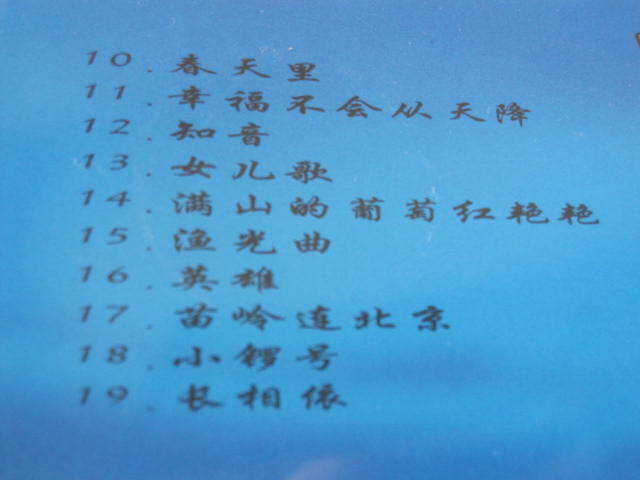 10. 春天里
11. 幸福不会从天降
12. 知音
13. 女儿歌
14. 满山的葡萄红艳艳
15. 渔光曲
16. 英雄
17. 苗岭连北京
18. 小锣号
19. 长相依